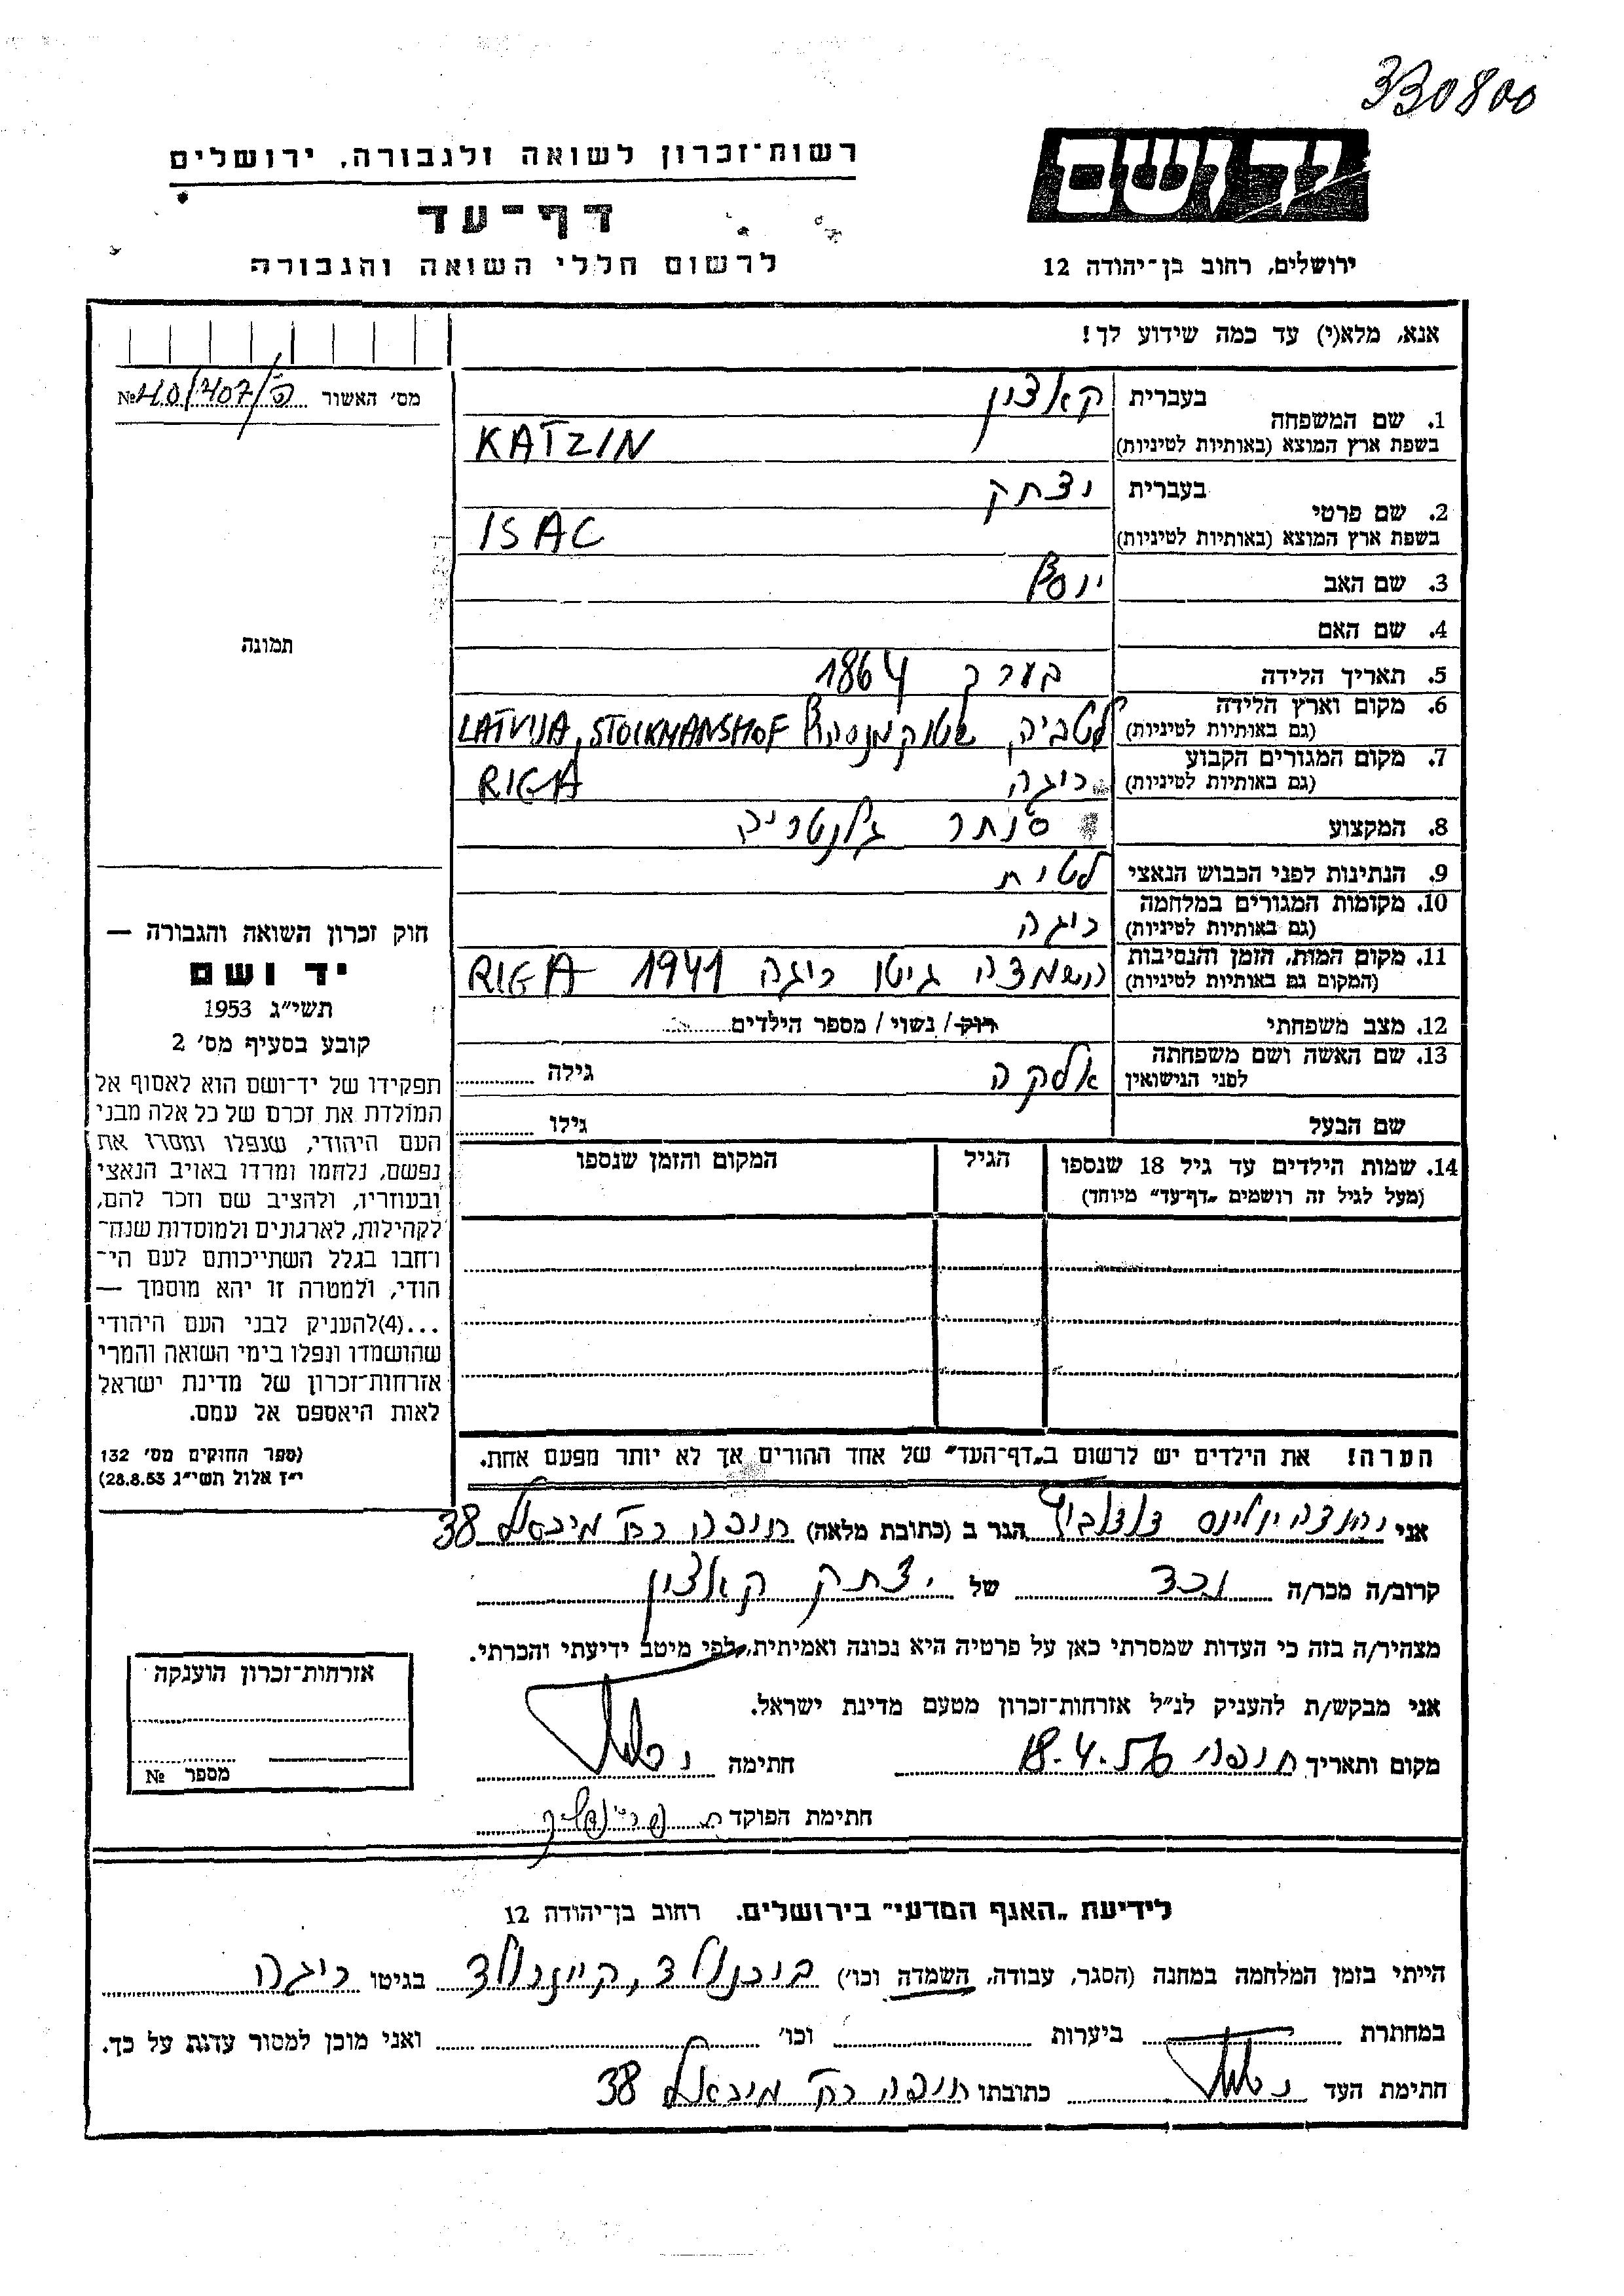 330800
יד ושם
רשות־זכרון לשואה ולגבורה, ירושלים
דף־עד
לרשום חללי השואה והגבורה
ירושלים, רחוב בן־יהודה 12
אנא, מלא(י) עד כמה שידוע לך!
מס׳ האשור №
1. שם המשפחה
בעברית קאצין
בשפת ארץ המוצא (באותיות לטיניות) KATZIN
2. שם פרטי
בעברית יצחק
בשפת ארץ המוצא (באותיות לטיניות) ISAC
3. שם האב יוסף
4. שם האם
5. תאריך הלידה בערך 1864
6. מקום וארץ הלידה
(גם באותיות לטיניות) לטביה, שטוקמנסהף LATVIJA, STOCKMANSHOF
7. מקום המגורים הקבוע
(גם באותיות לטיניות) ריגה RIGA
8. המקצוע סוחר גלנטריה
9. הנתינות לפני הכבוש הנאצי לטוית
10. מקומות המגורים במלחמה
(גם באותיות לטיניות) ריגה
11. מקום המות, הזמן והנסיבות
(המקום גם באותיות לטיניות) השמדה גיטו ריגה 1941 RIGA
12. מצב משפחתי רוק/ נשוי/ מספר הילדים
13. שם האשה ושם משפחתה
לפני הנישואין אלקה גילה
שם הבעל גילו
14. שמות הילדים עד גיל 18 שנספו
(מעל לגיל זה רושמים „דף־עד” מיוחד)
הגיל
המקום והזמן שנספו
הערה! את הילדים יש לרשום ב„דף־העד” של אחד ההורים אך לא יותר מפעם אחת.
תמונה
חוק זכרון השואה והגבורה —
יד ושם
תשי״ג 1953
קובע בסעיף מס׳ 2
תפקידו של יד־ושם הוא לאסוף אל
המולדת את זכרם של כל אלה מבני
העם היהודי, שנפלו ומסרו את
נפשם, נלחמו ומרדו באויב הנאצי
ובעוזריו, ולהציב שם וזכר להם,
לקהילות, לארגונים ולמוסדות שנח־
רחבו בגלל השתייכותם לעם הי־
הודי, ולמטרה זו יהא מוסמך —
...(4)להעניק לבני העם היהודי
שהושמדו ונפלו בימי השואה והמרי
אזרחות־זכרון של מדינת ישראל
לאות היאספם אל עמם.
(ספר החוקים מס׳ 132
י״ז אלול תשי״ג 28.8.53)
אני הגר ב (כתובת מלאה) חיפה רח׳ מיכאל 38
קרוב/ה מכר/ה נכד של יצחק קאצין
מצהיר/ה בזה כי העדות שמסרתי כאן על פרטיה היא נכונה ואמיתית, לפי מיטב ידיעתי והכרתי.
אני מבקש/ת להעניק לנ״ל אזרחות־זכרון מטעם מדינת ישראל.
מקום ותאריך חיפה 18.4.56 חתימה
חתימת הפוקד
אזרחות־זכרון הוענקה
מספר №
לידיעת „האגף המדעי” בירושלים. רחוב בן־יהודה 12
הייתי בזמן המלחמה במחנה (הסגר, עבודה, השמדה וכו׳) בוכנולד, קייזרולד בגיטו ריגה
במחתרת ביערות וכו׳ ואני מוכן למסור עדות על כך.
חתימת העד כתובתו חיפה רח׳ מיכאל 38